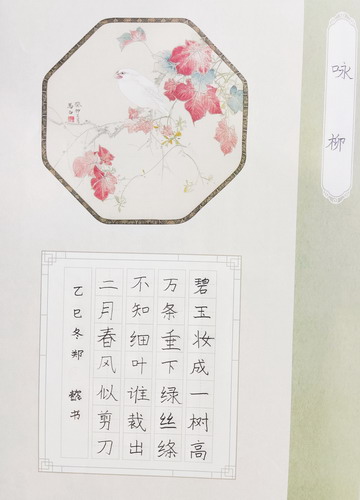 咏柳
碧玉妆成一树高
万条垂下绿丝绦
不知细叶谁裁出
二月春风似剪刀
乙巳冬郑 书